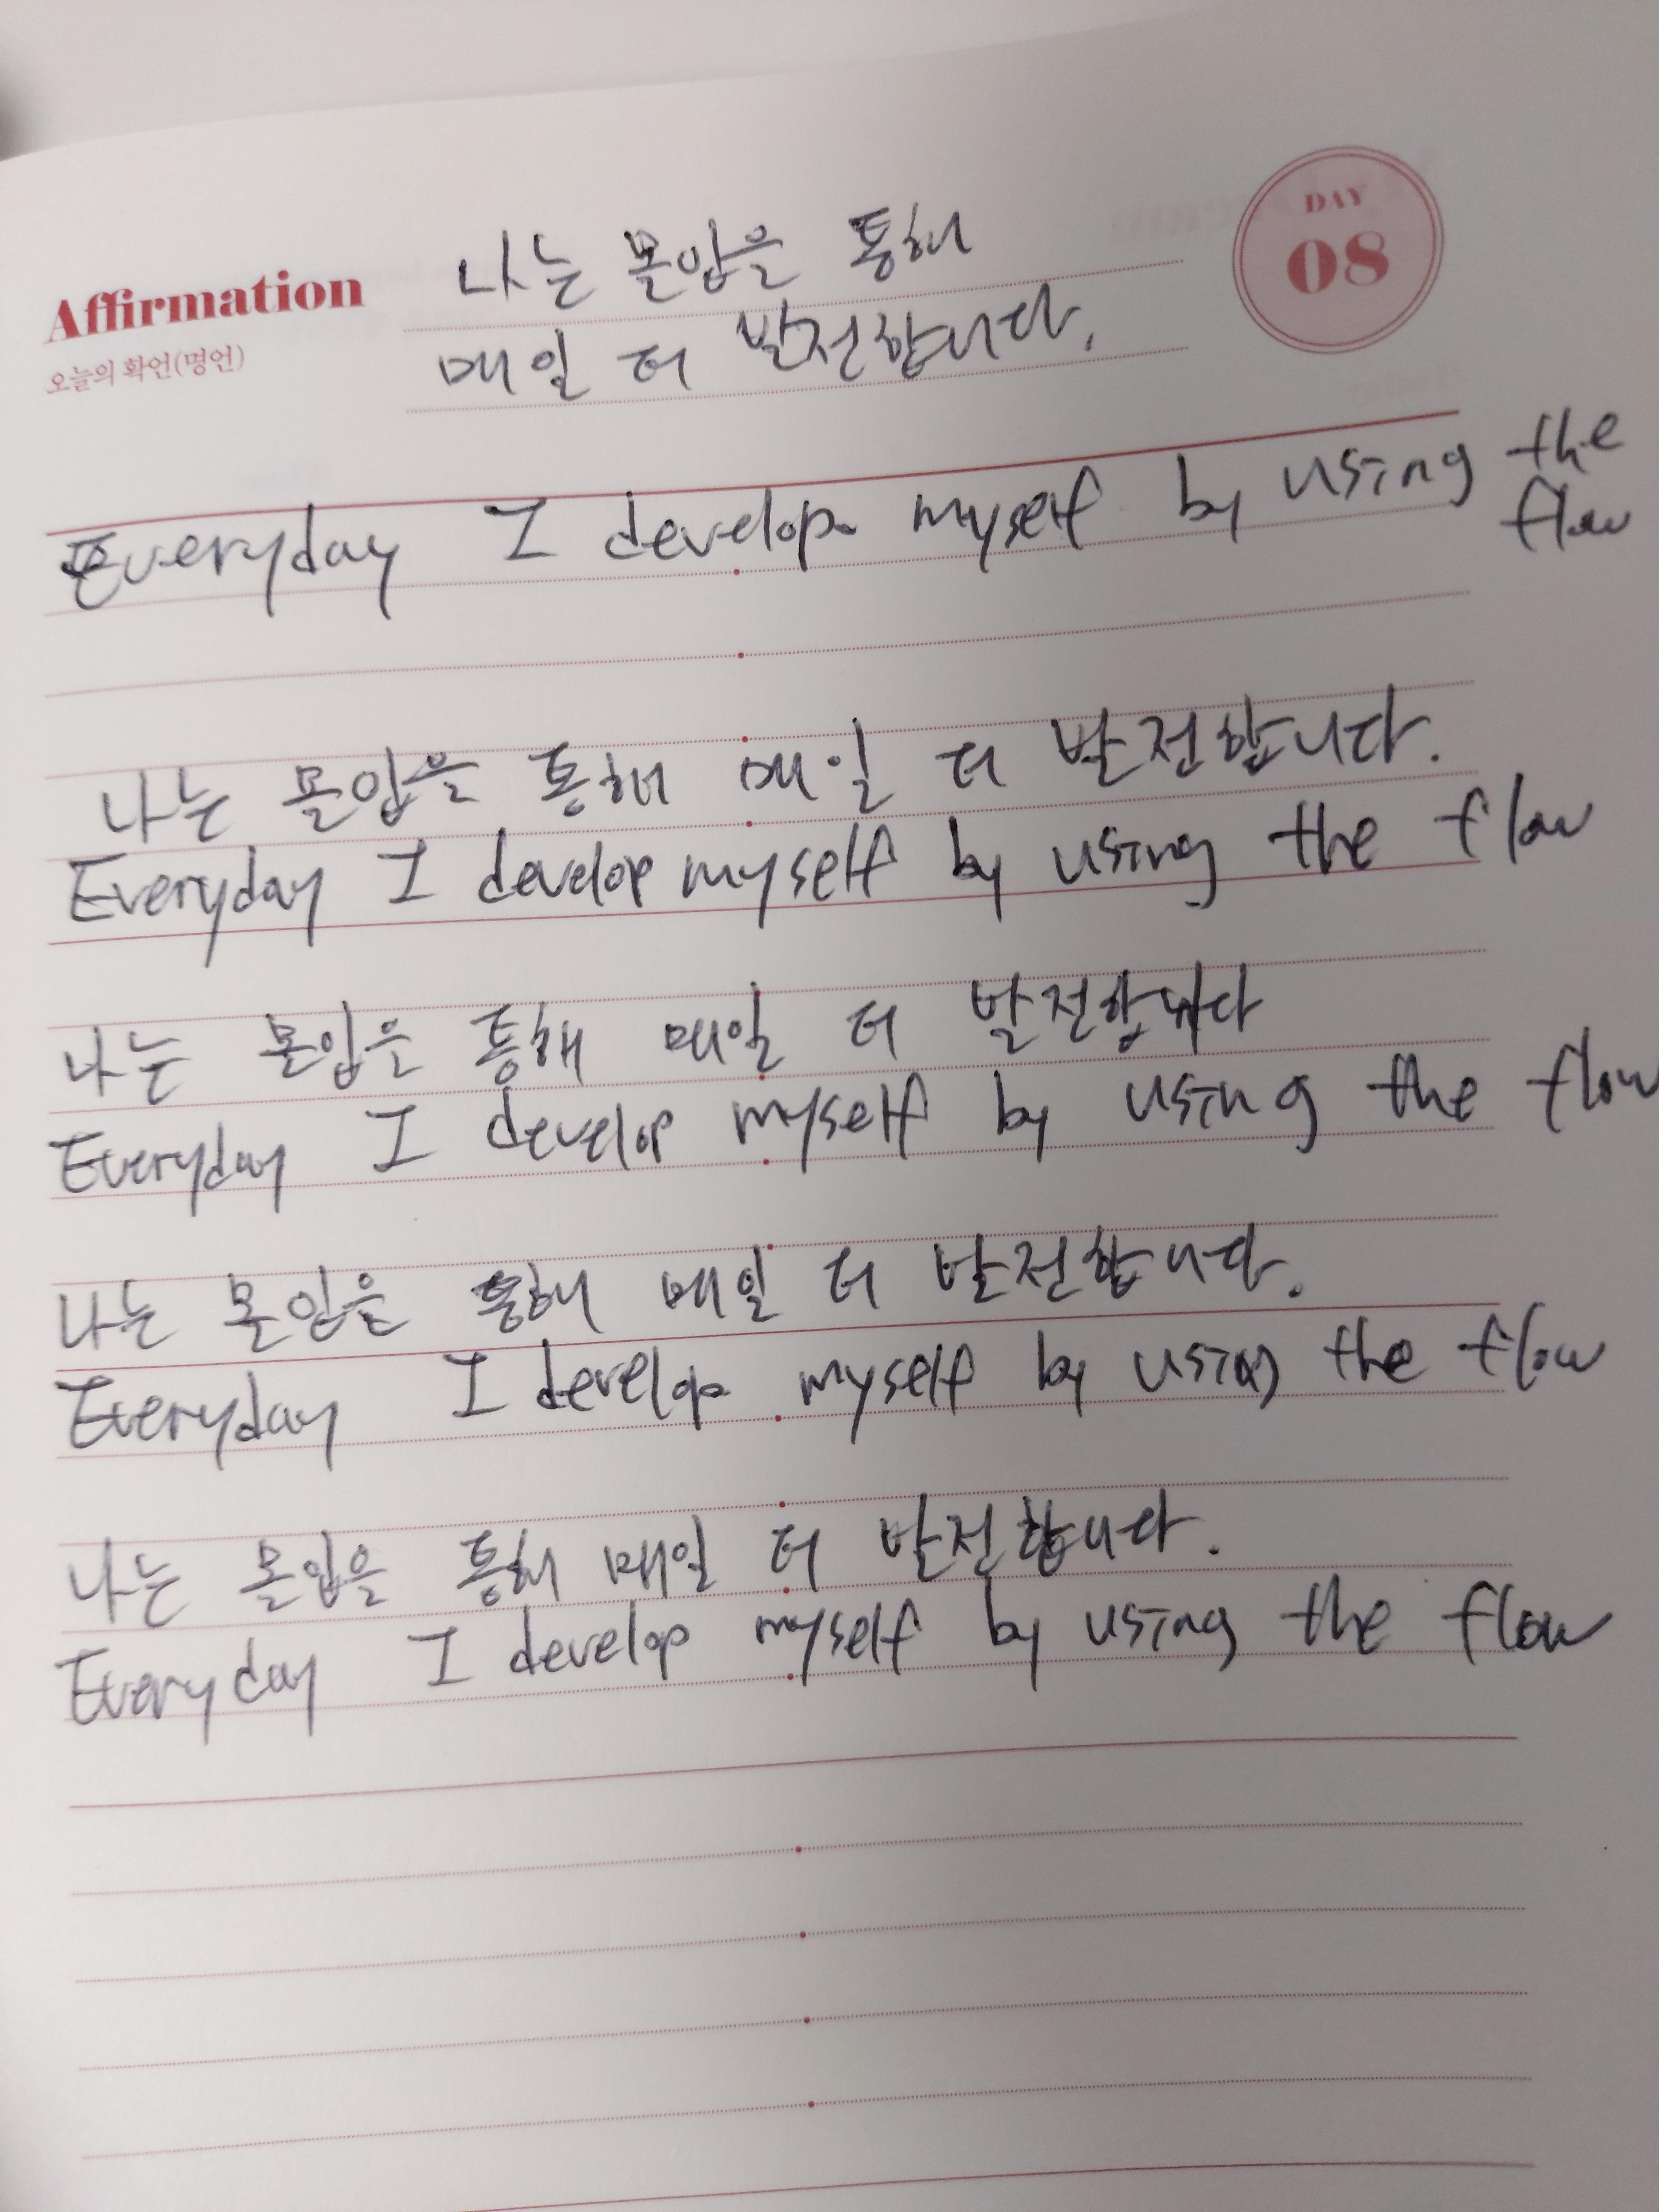 DAY
08
Affirmation
오늘의 확언(명언)
나는 몰입을 통해
매일 더 발전합니다.
Everyday I develop myself by using the
flow
나는 몰입을 통해 매일 더 발전합니다.
Everyday I develop myself by using the flow
나는 몰입은 통해 매일 더 발전합니다
Everyday I develop myself by using the flow
나는 몰입을 통해 매일 더 발전합니다.
Everyday I develop myself by using the flow
나는 몰입을 통해 매일 더 발전합니다.
Everyday I develop myself by using the flow